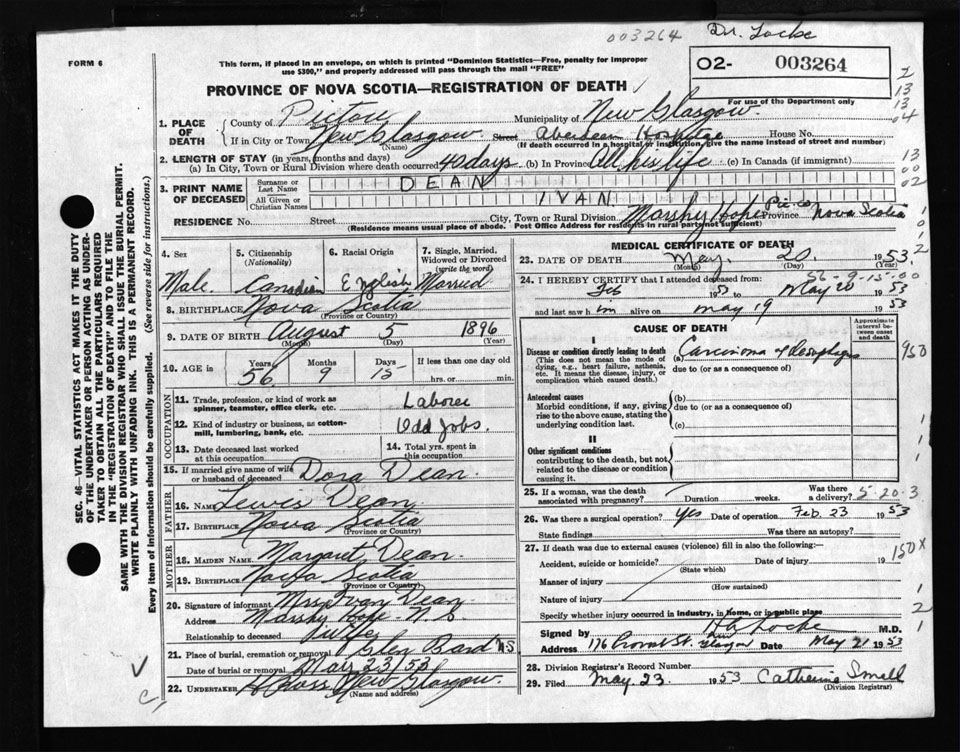 003264 Dr. Locke
FORM 6
This form, if placed in an envelope, on which is printed "Dominion Statistics—Free, penalty for improper
use $300," and properly addressed will pass through the mail "FREE"
02- 003264
For use of the Department only
PROVINCE OF NOVA SCOTIA—REGISTRATION OF DEATH
1. PLACE OF DEATH
County of Pictou Municipality of New Glasgow.
If in City or Town New Glasgow. Street Aberdeen Hospital House No.
(Name) (If death occurred in a hospital or institution, give the name instead of street and number)
2. LENGTH OF STAY (in years, months and days)
(a) In City, Town or Rural Division where death occurred 40 days (b) In Province All his life (c) In Canada (if immigrant)
3. PRINT NAME OF DECEASED
Surname or Last Name DEAN
All Given or Christian Names IVAN
RESIDENCE No. Street City, Town or Rural Division Marshy Hope Pic. co. Province Nova Scotia
(Residence means usual place of abode. Post Office Address for residents in rural parts not sufficient)
4. Sex Male.
5. Citizenship (Nationality) Canadian
6. Racial Origin English
7. Single, Married, Widowed or Divorced (write the word) Married
8. BIRTHPLACE Nova Scotia
(Province or Country)
9. DATE OF BIRTH August 5 1896
(Month) (Day) (Year)
10. AGE in Years 56 Months 9 Days 15 If less than one day old
hrs. or min.
OCCUPATION
11. Trade, profession or kind of work as
spinner, teamster, office clerk, etc. Laborer
12. Kind of industry or business, as cotton-
mill, lumbering, bank, etc. Odd Jobs.
13. Date deceased last worked
at this occupation
14. Total yrs. spent in
this occupation
15. If married give name of wife
or husband of deceased Dora Dean
FATHER
16. Name Lewis Dean
17. BIRTHPLACE Nova Scotia
(Province or Country)
MOTHER
18. MAIDEN NAME Margaret Dean
19. BIRTHPLACE Nova Scotia
(Province or Country)
20. Signature of informant Mrs Ivan Dean
Address Marshy Hope N.S
Relationship to deceased Wife
21. Place of burial, cremation or removal Glen Bard N.S
Date of burial or removal May 23/53
22. UNDERTAKER New Glasgow.
(Name and address)
MEDICAL CERTIFICATE OF DEATH
23. DATE OF DEATH May. 20. 1953.
(Month) (Day)
56-9-15-00
24. I HEREBY CERTIFY that I attended deceased from:
Feb 1953 to May 20 1953
and last saw him alive on may 19 1953
CAUSE OF DEATH
Approximate interval between onset and death
I
Disease or condition directly leading to death (a) Carcinoma of Oesophagus
(This does not mean the mode of
dying, e.g., heart failure, asthenia,
etc. It means the disease, injury, or
complication which caused death.)
due to (or as a consequence of)
Antecedent causes (b)
Morbid conditions, if any, giving
rise to the above cause, stating the
underlying condition last.
due to (or as a consequence of)
(c)
II
Other significant conditions
contributing to the death, but not
related to the disease or condition
causing it.
25. If a woman, was the death
associated with pregnancy? Duration weeks. Was there
a delivery? 5-20-3
26. Was there a surgical operation? Yes Date of operation Feb. 23 1953
State findings Was there an autopsy?
27. If death was due to external causes (violence) fill in also the following:— 150X
Accident, suicide or homicide? Date of injury 19
(State which)
Manner of injury
(How sustained)
Nature of injury
Specify whether injury occurred in industry, in home, or in public place
Signed by HA Locke M.D.
Address 176 Provost St. Date May 21 1953
28. Division Registrar's Record Number
29. Filed May. 23 1953 Catherine Small
(Division Registrar)
SEC. 46—VITAL STATISTICS ACT MAKES IT THE DUTY
OF THE UNDERTAKER OR PERSON ACTING AS UNDER-
TAKER TO OBTAIN ALL THE PARTICULARS REQUIRED
IN THE "REGISTRATION OF DEATH" AND TO FILE THE
SAME WITH THE DIVISION REGISTRAR WHO SHALL ISSUE THE BURIAL PERMIT.
WRITE PLAINLY WITH UNFADING INK. THIS IS A PERMANENT RECORD.
Every item of information should be carefully supplied. (See reverse side for instructions.)